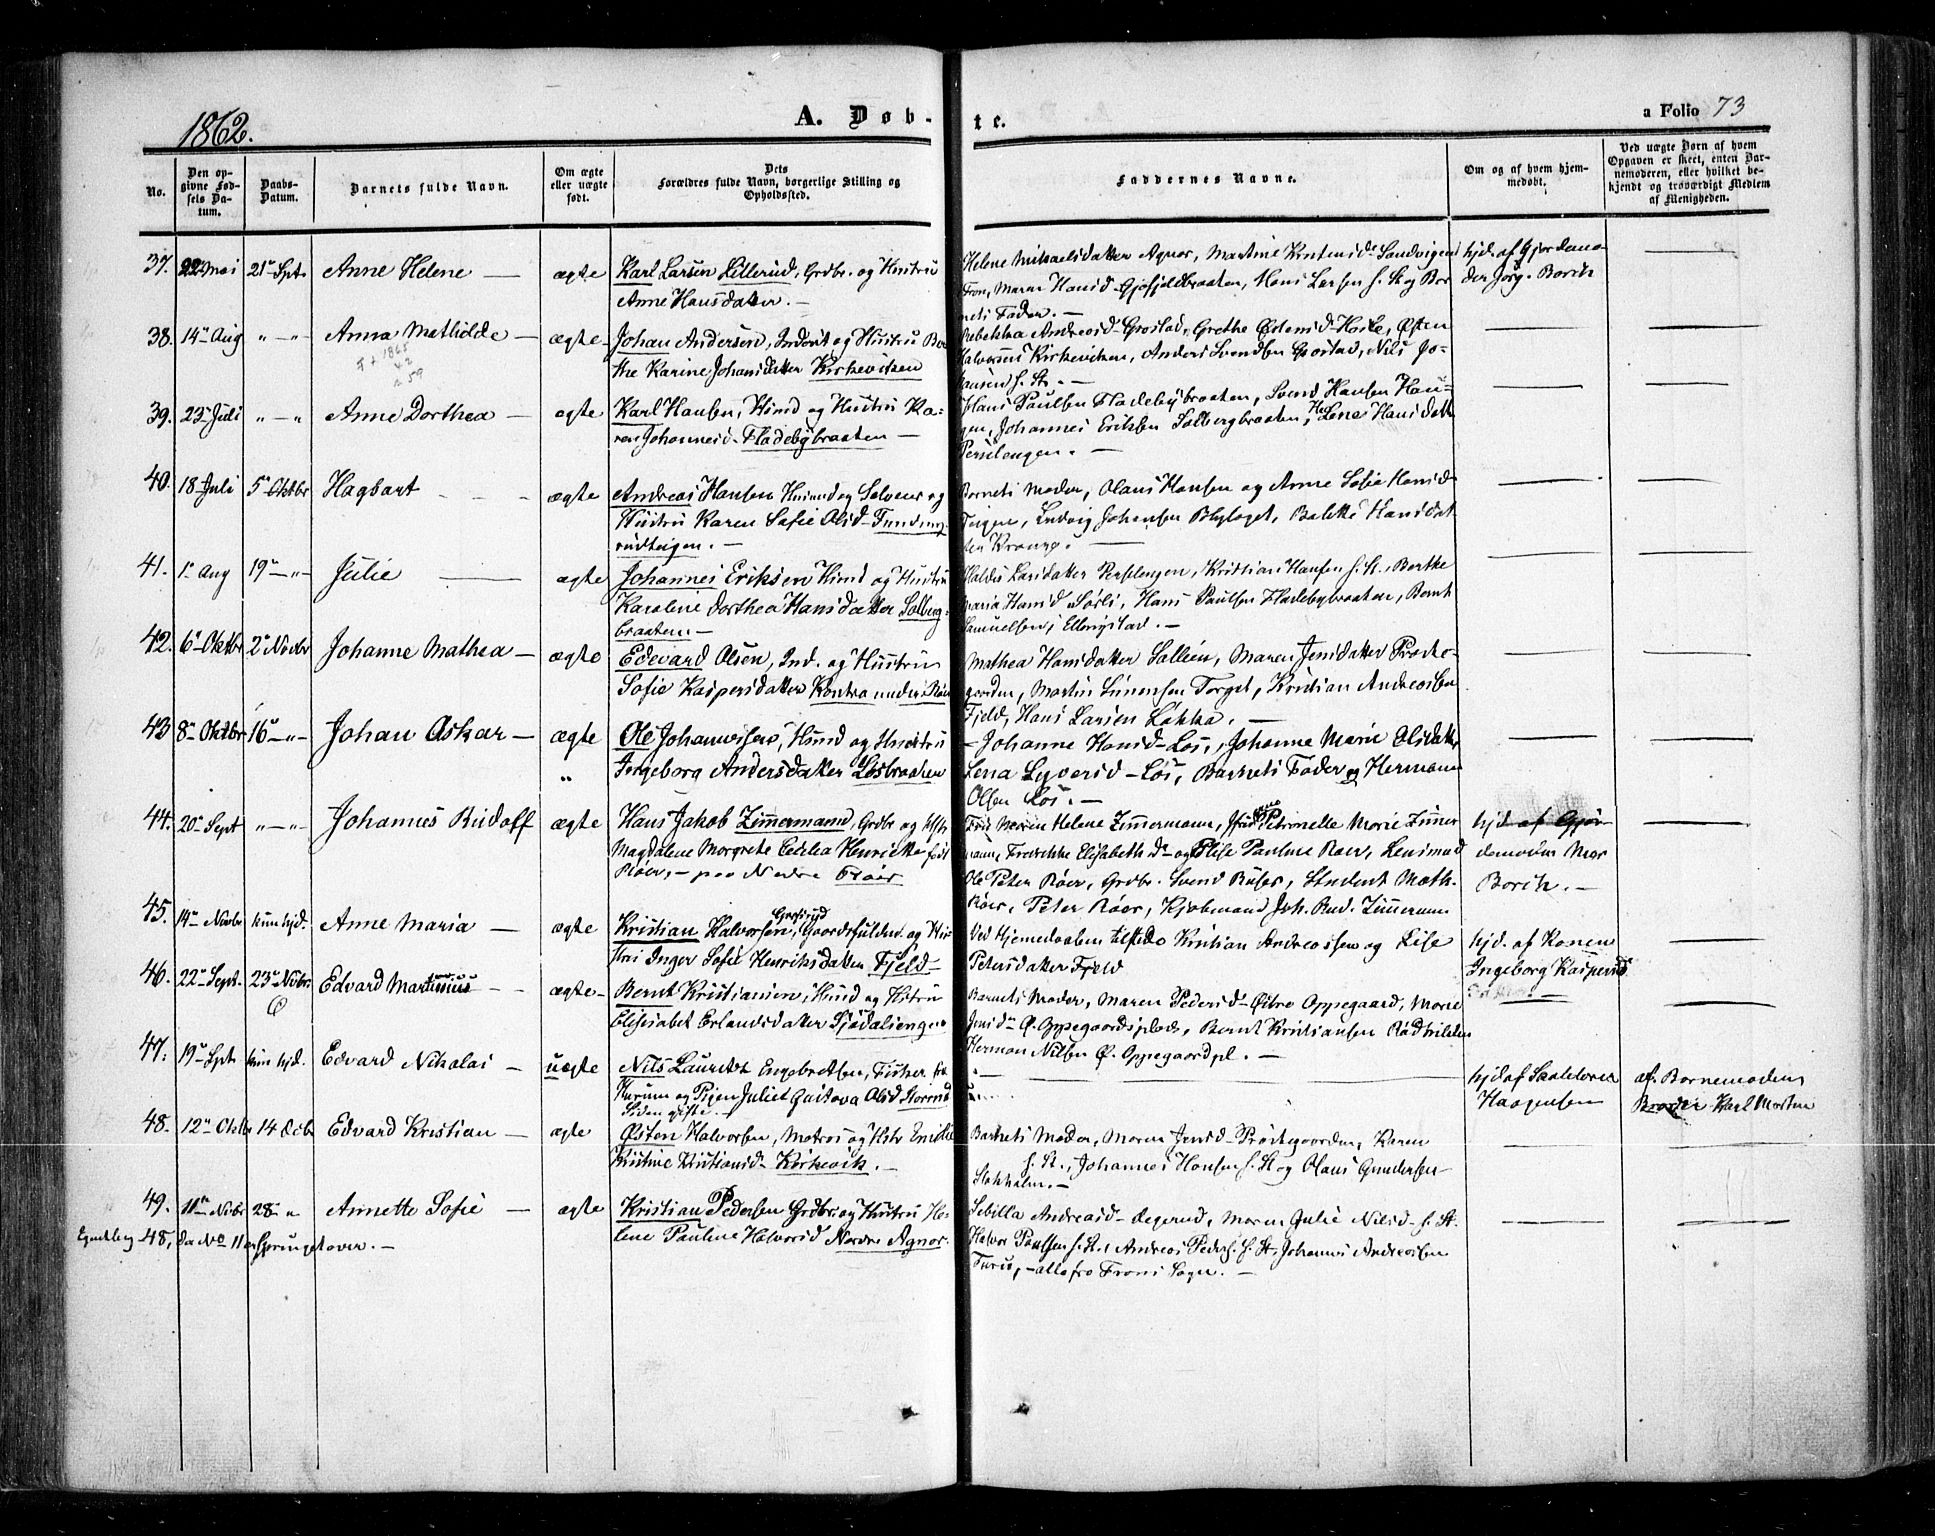 1862.
A. Døb-
te.
a Folio 73
No.
Den op-
givne Fød-
sels Da-
tum.
Daabs-
Datum.
Barnets fulde Navn.
Om ægte
eller uægte
født.
Dets
Forældres fulde Navn, borgerlige Stilling og
Opholdssted.
Faddernes Navne.
Om og af hvem hjem-
medøbt.
Ved uægte Børn af hvem
Opgaven er skeet, enten Bar-
nemoderen, eller hvilket be-
kjendt og troværdigt Medlem
af Menigheden.
37. 22 Mai 21 Spt. Anne Helene — ægte Karl Larsen Lillerud, Grdbr. og Hustru
Anne Hansdatter. —
Helene Mikaelsdatter Agnor, Martine
Fron, Maren Hansd. Larsen f. St. og Bar-
nets Fader. —
hjd. af Gjordemo-
der Jørg. Borch
38. 14 Aug „ — „ Anna Mathilde — ægte Johan Andersen, Inderst og Hustru Ber-
the Karine Johansdatter Kirkevitsen
Rebekka Andreasd. Grostad, Grethe
Halvorsen Kirkeviken, Anders Svendsen Grostad, Nils Jo-
hansen f. St. —
39. 23 Juli „ — „ Anne Dorthea — ægte Karl Hansen, Husmd og Hustru Ka-
ren Johannesd. Fladebybraaten —
Hans Paulsen Fladebybraaten, Svend Hansen Hau-
gen, Johannes Eriksen Solbergbraaten, Lene Hansdatt.
Perslengen. —
40. 18 Juli 5 Oktbr Hagbart ægte Andreas Hansen Husmd og Selveier og
Hustru Karen Sofie Olsd. Tundung-
rudteigen. —
Barnets Moder, Olaus Hansen og Anne Sofie Hansd.
Teigen, Ludvig Johansen Hansdat-
ter
41. 1 Aug 19 — „ — Julie — ægte Johannes Eriksen Husmd og Hustru
Karoline Dorthea Hansdatter Solberg-
braaten —
Larsdatter Perslengen, Kristian Hansen f. St., Berthe
Maria Hansd. Sørli, Hans Paulsen Fladebybraaten, Bernt
Samuelsen, Ellingstad. —
42. 6 Oktbr 2 Novbr Johanne Mathea — ægte Edevard Olsen, Ind. og Hustru
Sofie Kaspersdatter Kontra under Røer
Mathea Hansdatter Sollien, Maren Jensdatter Præste-
gaarden, Martin Simensen Torget, Kristian Andreassen
Fjeld, Hans Larsen Løkka. —
43. 8 Oktbr 16 — „ — Johan Oskar — ægte Ole Johannesen, Husmd og Hustru
„ Ingeborg Andersdatter Løsbraaten
— Johanne Hansd. Løs, Johanne Marie Olsdatter
Lena Syversd. — Løs, Barnets Fader og Herman
Olsen Løs. —
44. 20 Sept „ — „ — Johannes Rudolf ægte Hans Jakob Zimermand, Grdbr og Hstr
Magdalene Margrete Cecilia Henrikke født
Røer, — paa Nedre Froer
Fru Maren Helene Zimermann, Petronelle Marie Zimer-
mann, Fredrikke Elisabeth d. og Elise Pauline Røer, Lensmand
Ole Peter Røer, Grdbr. Svend Student Math.
Røer, Peter Røer, Kjøbmand Joh. Rud. Zimermann
hjd. af Gjor-
demoder Mar
Borch. —
45. 14 Novbr kun hjd. Anne Maria — ægte Kristian Halvorsen, Gaardsfuldm. og Hu-
stru Inger Sofie Henriksdatter Fjeld —
Ved Hjemedaaben tilstede Kristian Andreassen og Lise
Petersdatter Fjeld
hjd. af Konen
Ingeborg Kaspersd.
46. 22 Sept. 23 Novbr Edvard Martinius — ægte Bernt Kristiansen, Husmd og Hstru
Elisabet Erlandsdatter Sjødalengen
Barnets Moder, Maren Pedersd. Østre Oppegaard, Marie
Jensd. Ø. Oppegaardsplads, Bernt Kristiansen
Herman Nilsen Ø. Oppegaardpl. —
47. 19 Spt. kun hjd. Edvard Nikolai — uægte Nils Lauritz Engebretsen, Fisker fra
Hurum og Pigen Juliet Gustava Olsd.
Siden gifte. —
hjd af
Haagensen
af Barnemoderens
Broder Karl Morten
48. 12 Oktbr 14 Decbr Edvard Kristian — ægte Østen Halvorsen, Matros og Hstr Emilie
Kristine Kristiansd. Kirkevik. —
Barnets Moder, Maren Jensd. Præstegaarden, Karen
f. St., Johannes Hansen f. St og Olaus Gundersen
Stokholm. —
49. 11 Novbr 28 „ Annette Sofie — ægte Kristian Pedersen Grdbr. og Hustru He-
lene Pauline Halvorsd Nordre Agnor.
Sibilla Andreasd. Degerud, Maren Julie Nilsd. f. St.
Halvor Paulsen f. St., Andreas Peders. f. St., Johannes Andreassen
— alle fra Frons Sogn. —
Egentlig 48, da No 11 er sprunget over. —